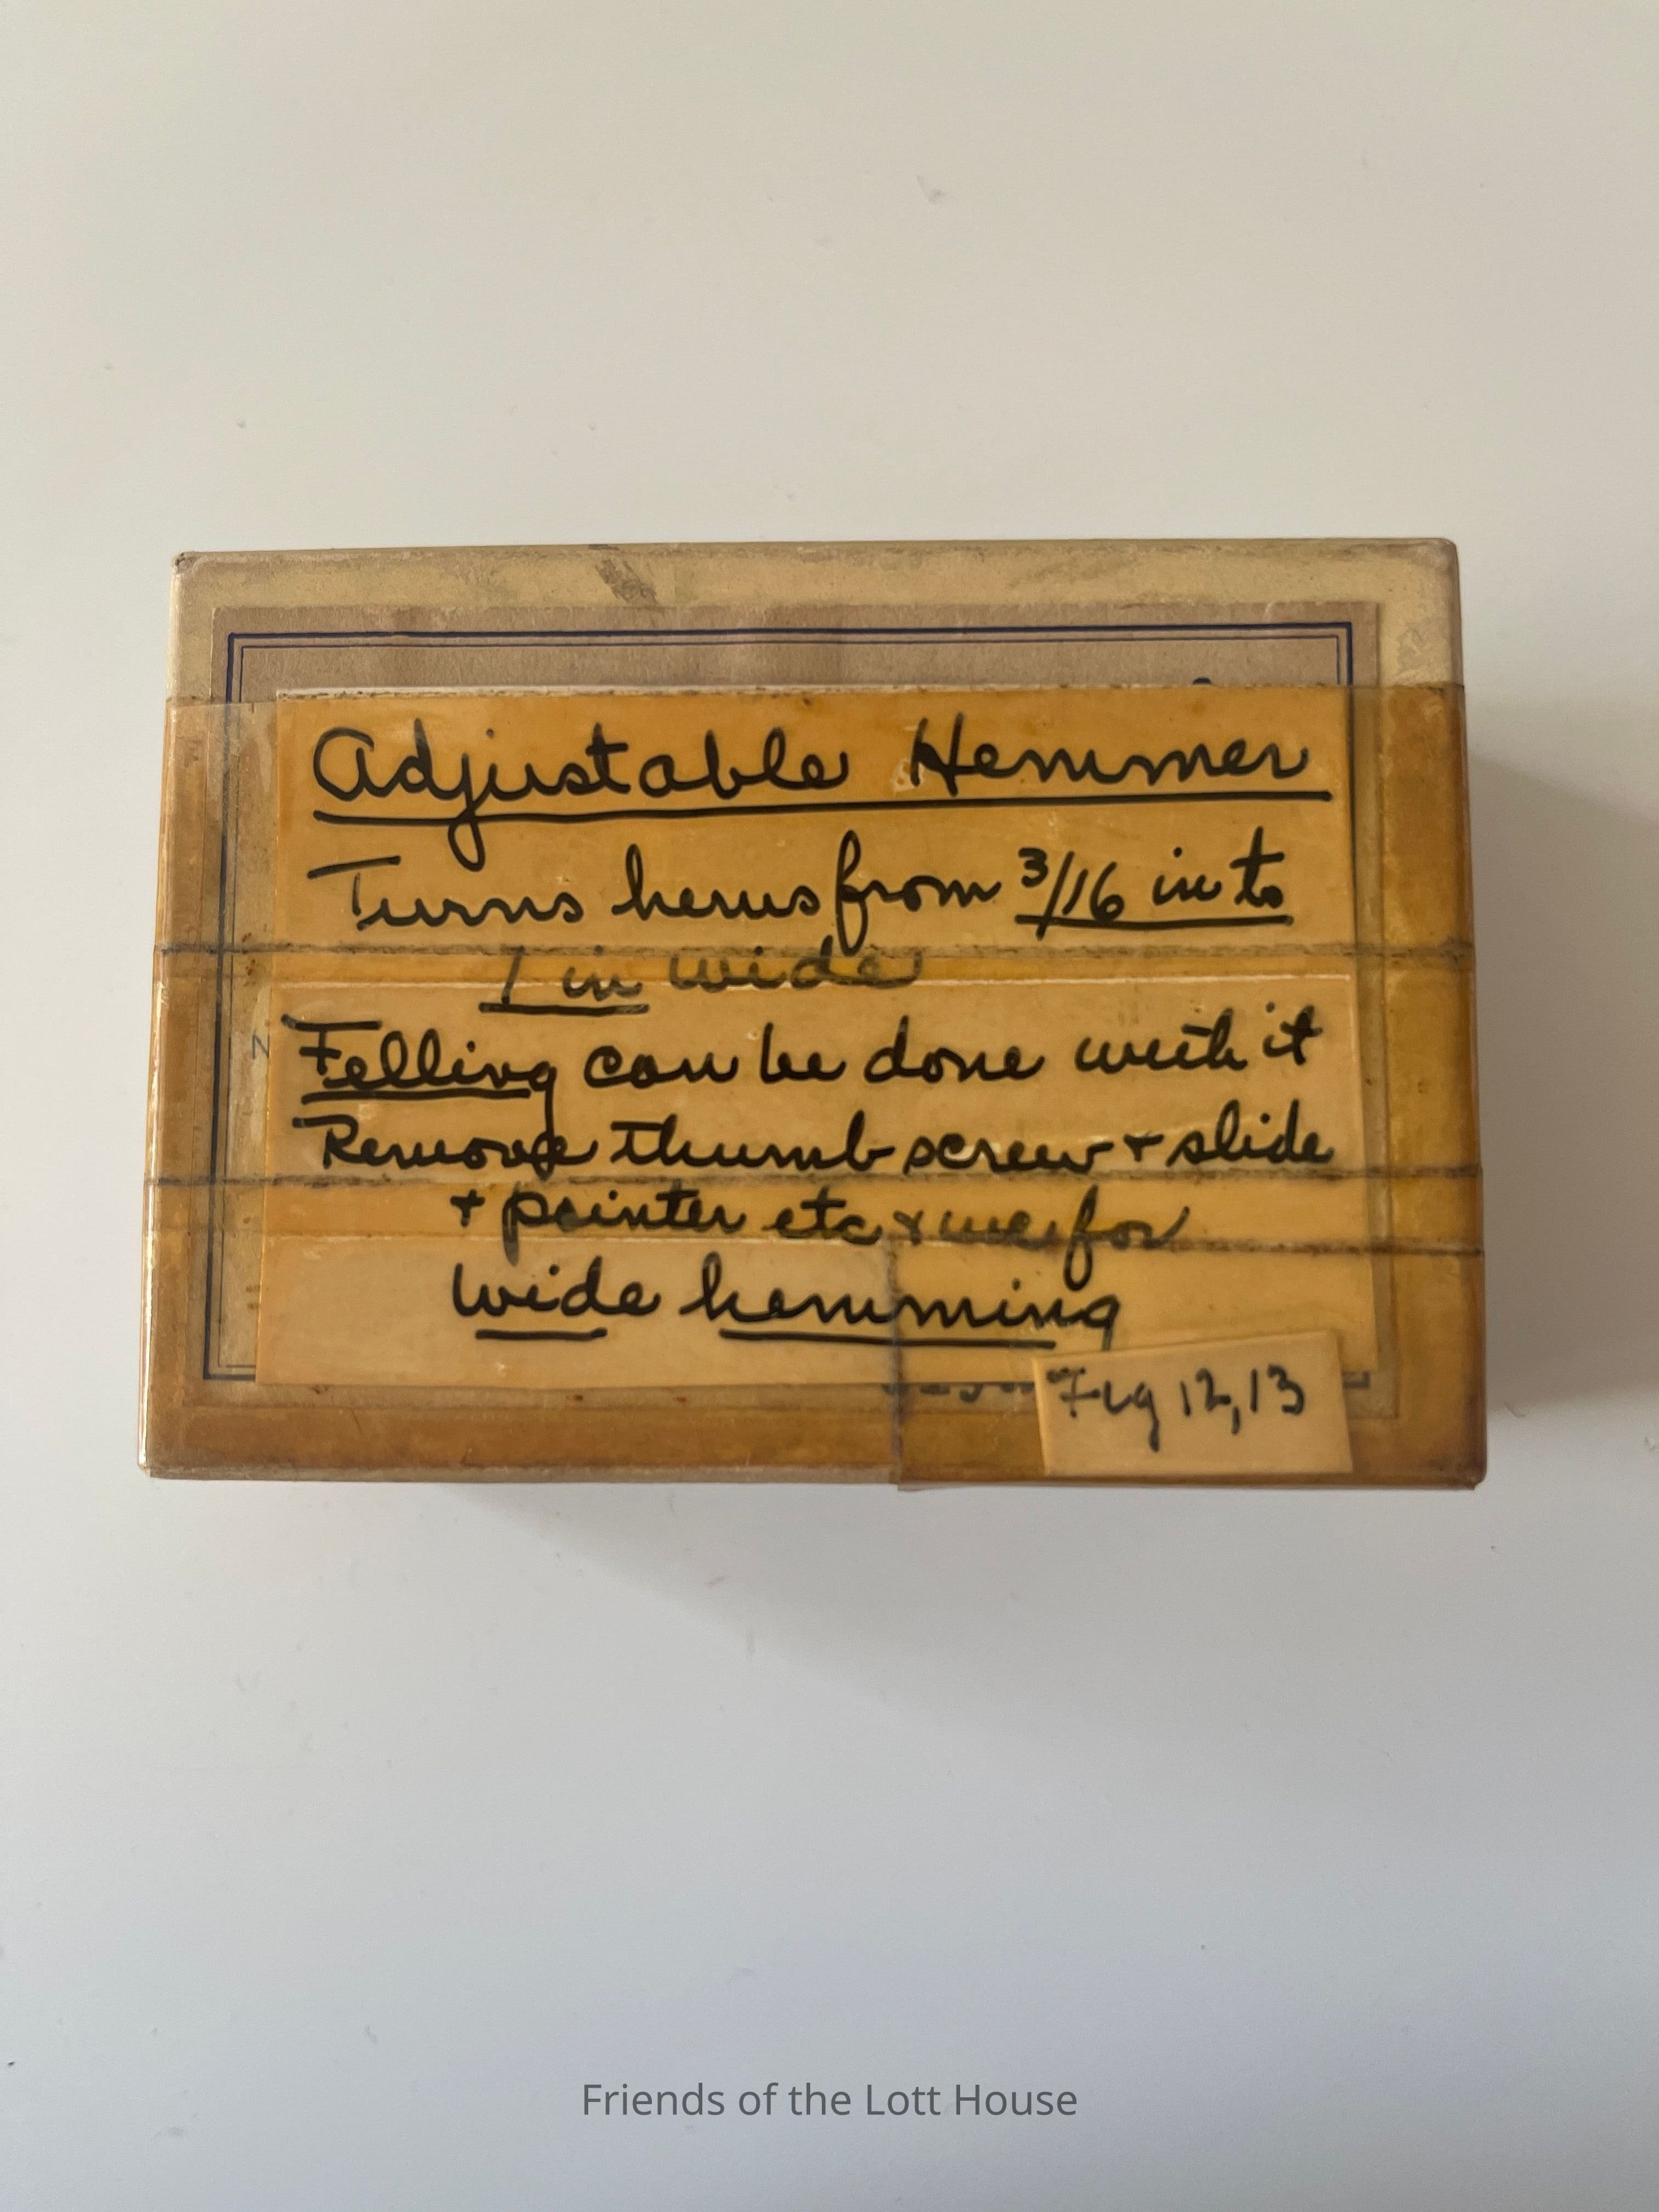 Adjustable Hemmer
Turns hems from 3/16 in to
1 in wide
Felling can be done with it
Remove thumb screw + slide
+ pointer etc + use for
wide hemming
Fig 12,13
N
Friends of the Lott House